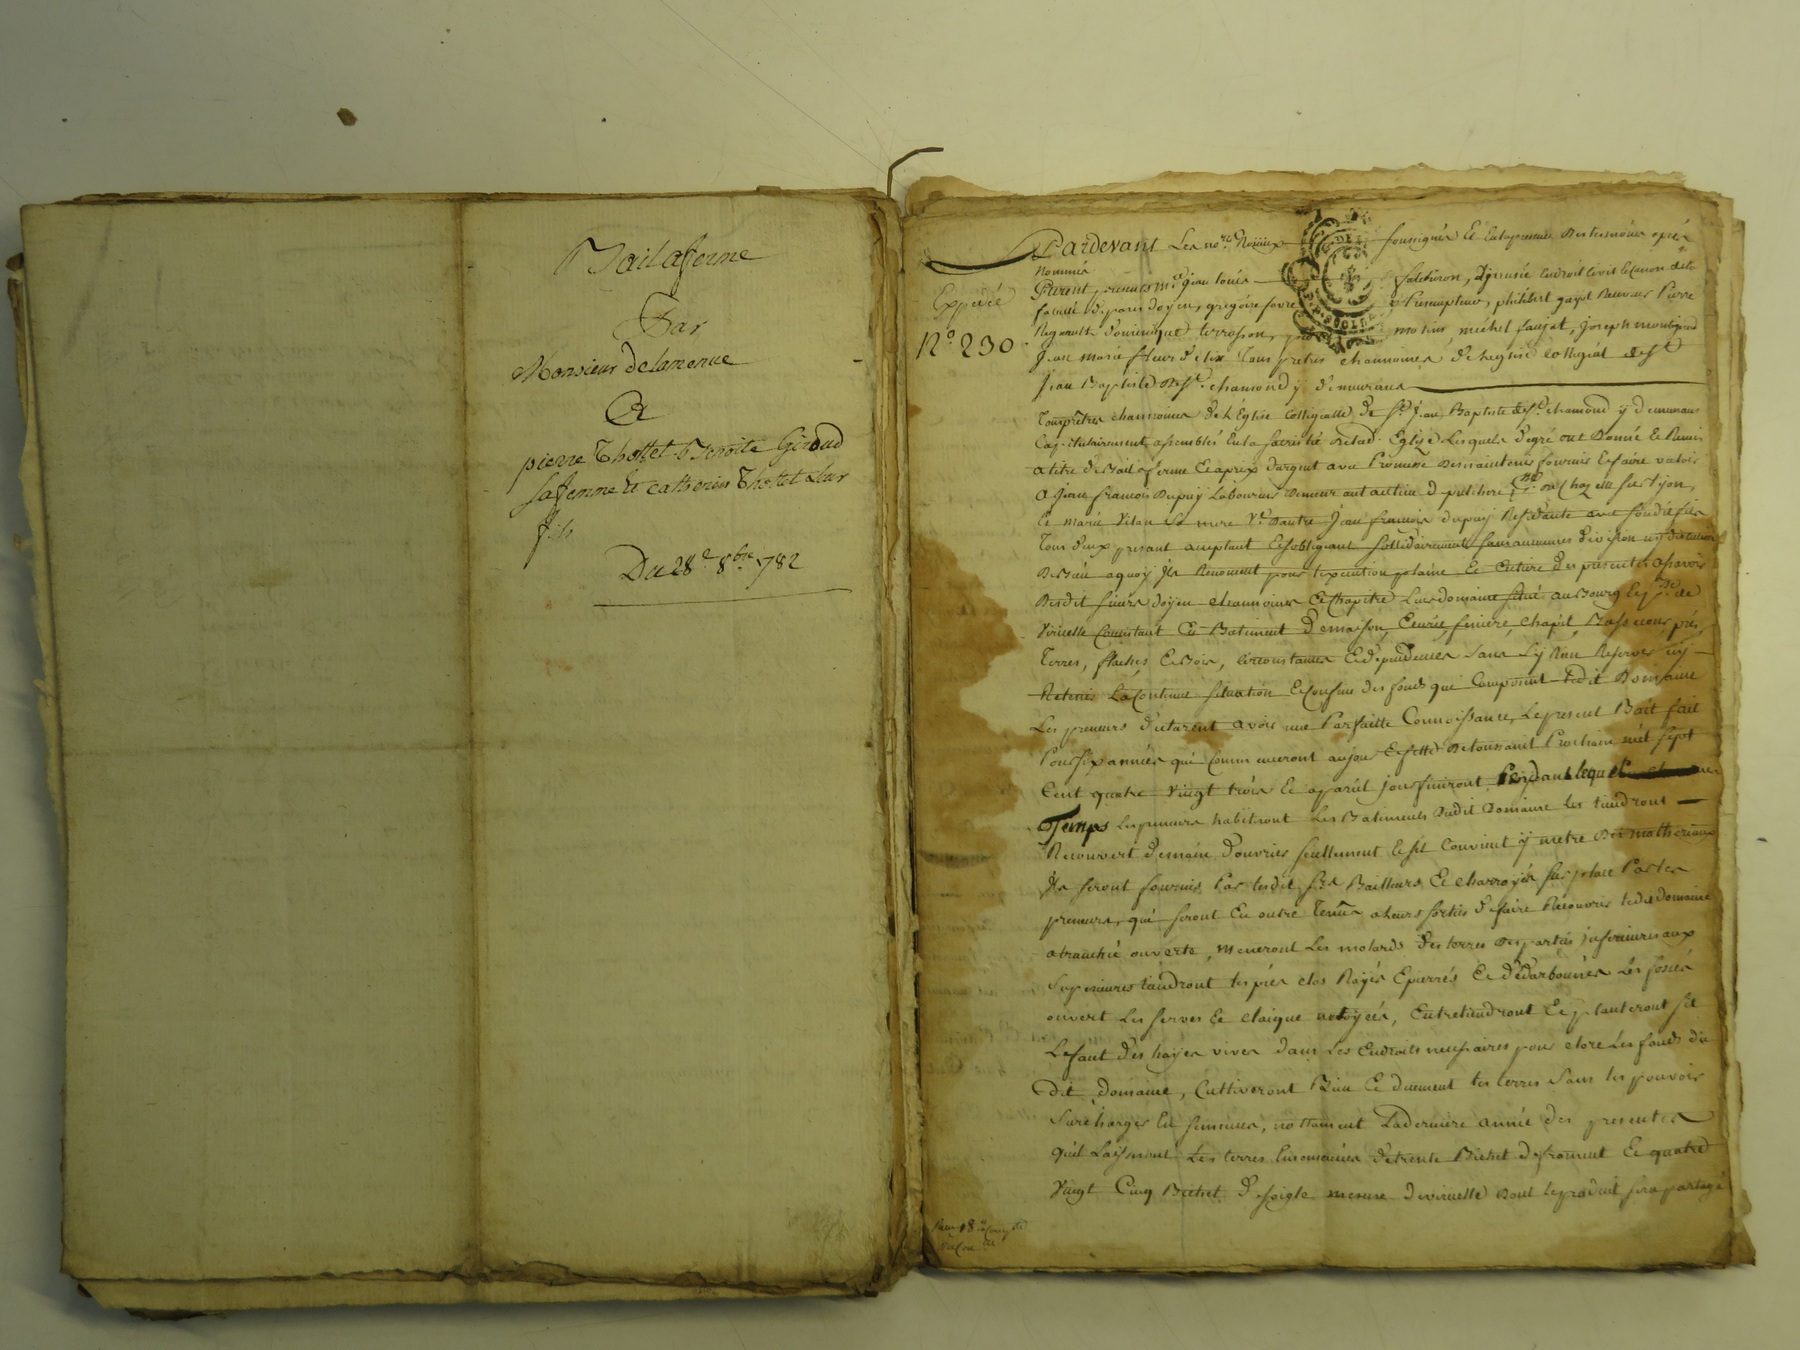 Bail a ferme
Par
Monsieur delamenue
A
pierre Thollet Benoite Giroud
sa femme et catherin Thollet Leur
fils
Du 28e 8bre 782
Expedié
No 230
Pardevant Les nores Roiiaux soussignés Et En la presence Des temoins après
Nommés
furent presents mre jean louis
faculté de paris doyen, gregoire favre philibert gayot
Regnault dominique terrasson, michel faujat, joseph
Jean marie fleurdelix Tous pretres chanoines de legise collegial de St
Jean Baptiste de St chamond y demeurans
Tous prêtres chanoines de L'Eglise Collegialle de St Jean Baptiste de St chamond y demeurans
Capitulairement assemblés En la sacristie de lad. Eglise Lesquels de gré ont Donné Et Remis
a titre de Bail a ferme Et a prix d'argent avec Promesse De maintenir fournir Et faire valoir
a jean francois Dupuy Laboureur Demeurant au lieu de psse de chazelle sur lyon,
Et marie Vilan Sa mere Ve D'autre Jean francois dupuy Residante avec sondit fils
Tous deux presant acceptant Et s'obligeant sollidairement sans aucunes division ny discution
De Bien a quoy ils Renoncent pour l'execution plaine Et Entiere des presentes a savoir
Desdit sieurs doyen chanoines Et Chapitre Leur domaine situé au Bourg Et psse de
Viricelle Consistant En Batiment De maison, Ecurie feniere, chapit, Basse cour, prés,
Terres, flaches Et Bois, circonstances Et dependences sans y Rien Reserver ny
Retenir La Contenue situation Et Confins des fonds qui Composent ledit Domaine
Les preneurs declarent avoir une Parfaitte Connoissance, Le present Bail fait
Pour six années qui Commenceront au jour Et fette De toussaint Prochain mil sept
Cent quatre Vingt trois Et a pareil jour finiront Pendant lequel
Temps les preneurs habiteront Les Batiments dudit Domaine Les tiendront
Recouvert de main d'ouvrier seullement Et s'il Convient y metre Des matheriaux
Ils seront fournis Par lesdit srs Bailleurs Et charroyés sur place Par les
preneurs, qui seront En outre Tenus a leurs sorties de faire Recouvrir ledit domaine
a tranché ouverte, meneront Les molards des terres des parties inferieures aux
superieures tiendront les prés clos Rayés Epierrés Et dédarbounés Les fossés
ouvert Les serves Et claique netoyées, Entretiendront Et planteront s'il
Le faut des hayes vives dans Les Endroits necessaires pour clore Les fonds du
dit domaine, Cultiveront Bien Et duement les terres sans les pouvoir
surcharger En semences, nottament La derniere année des presentes
quil Laisseront Les terres Ensemencées de trente Bichet de froment Et quatre
Vingt Cinq Bichet de seigle mesure de viricelle dont le produit sera partagé